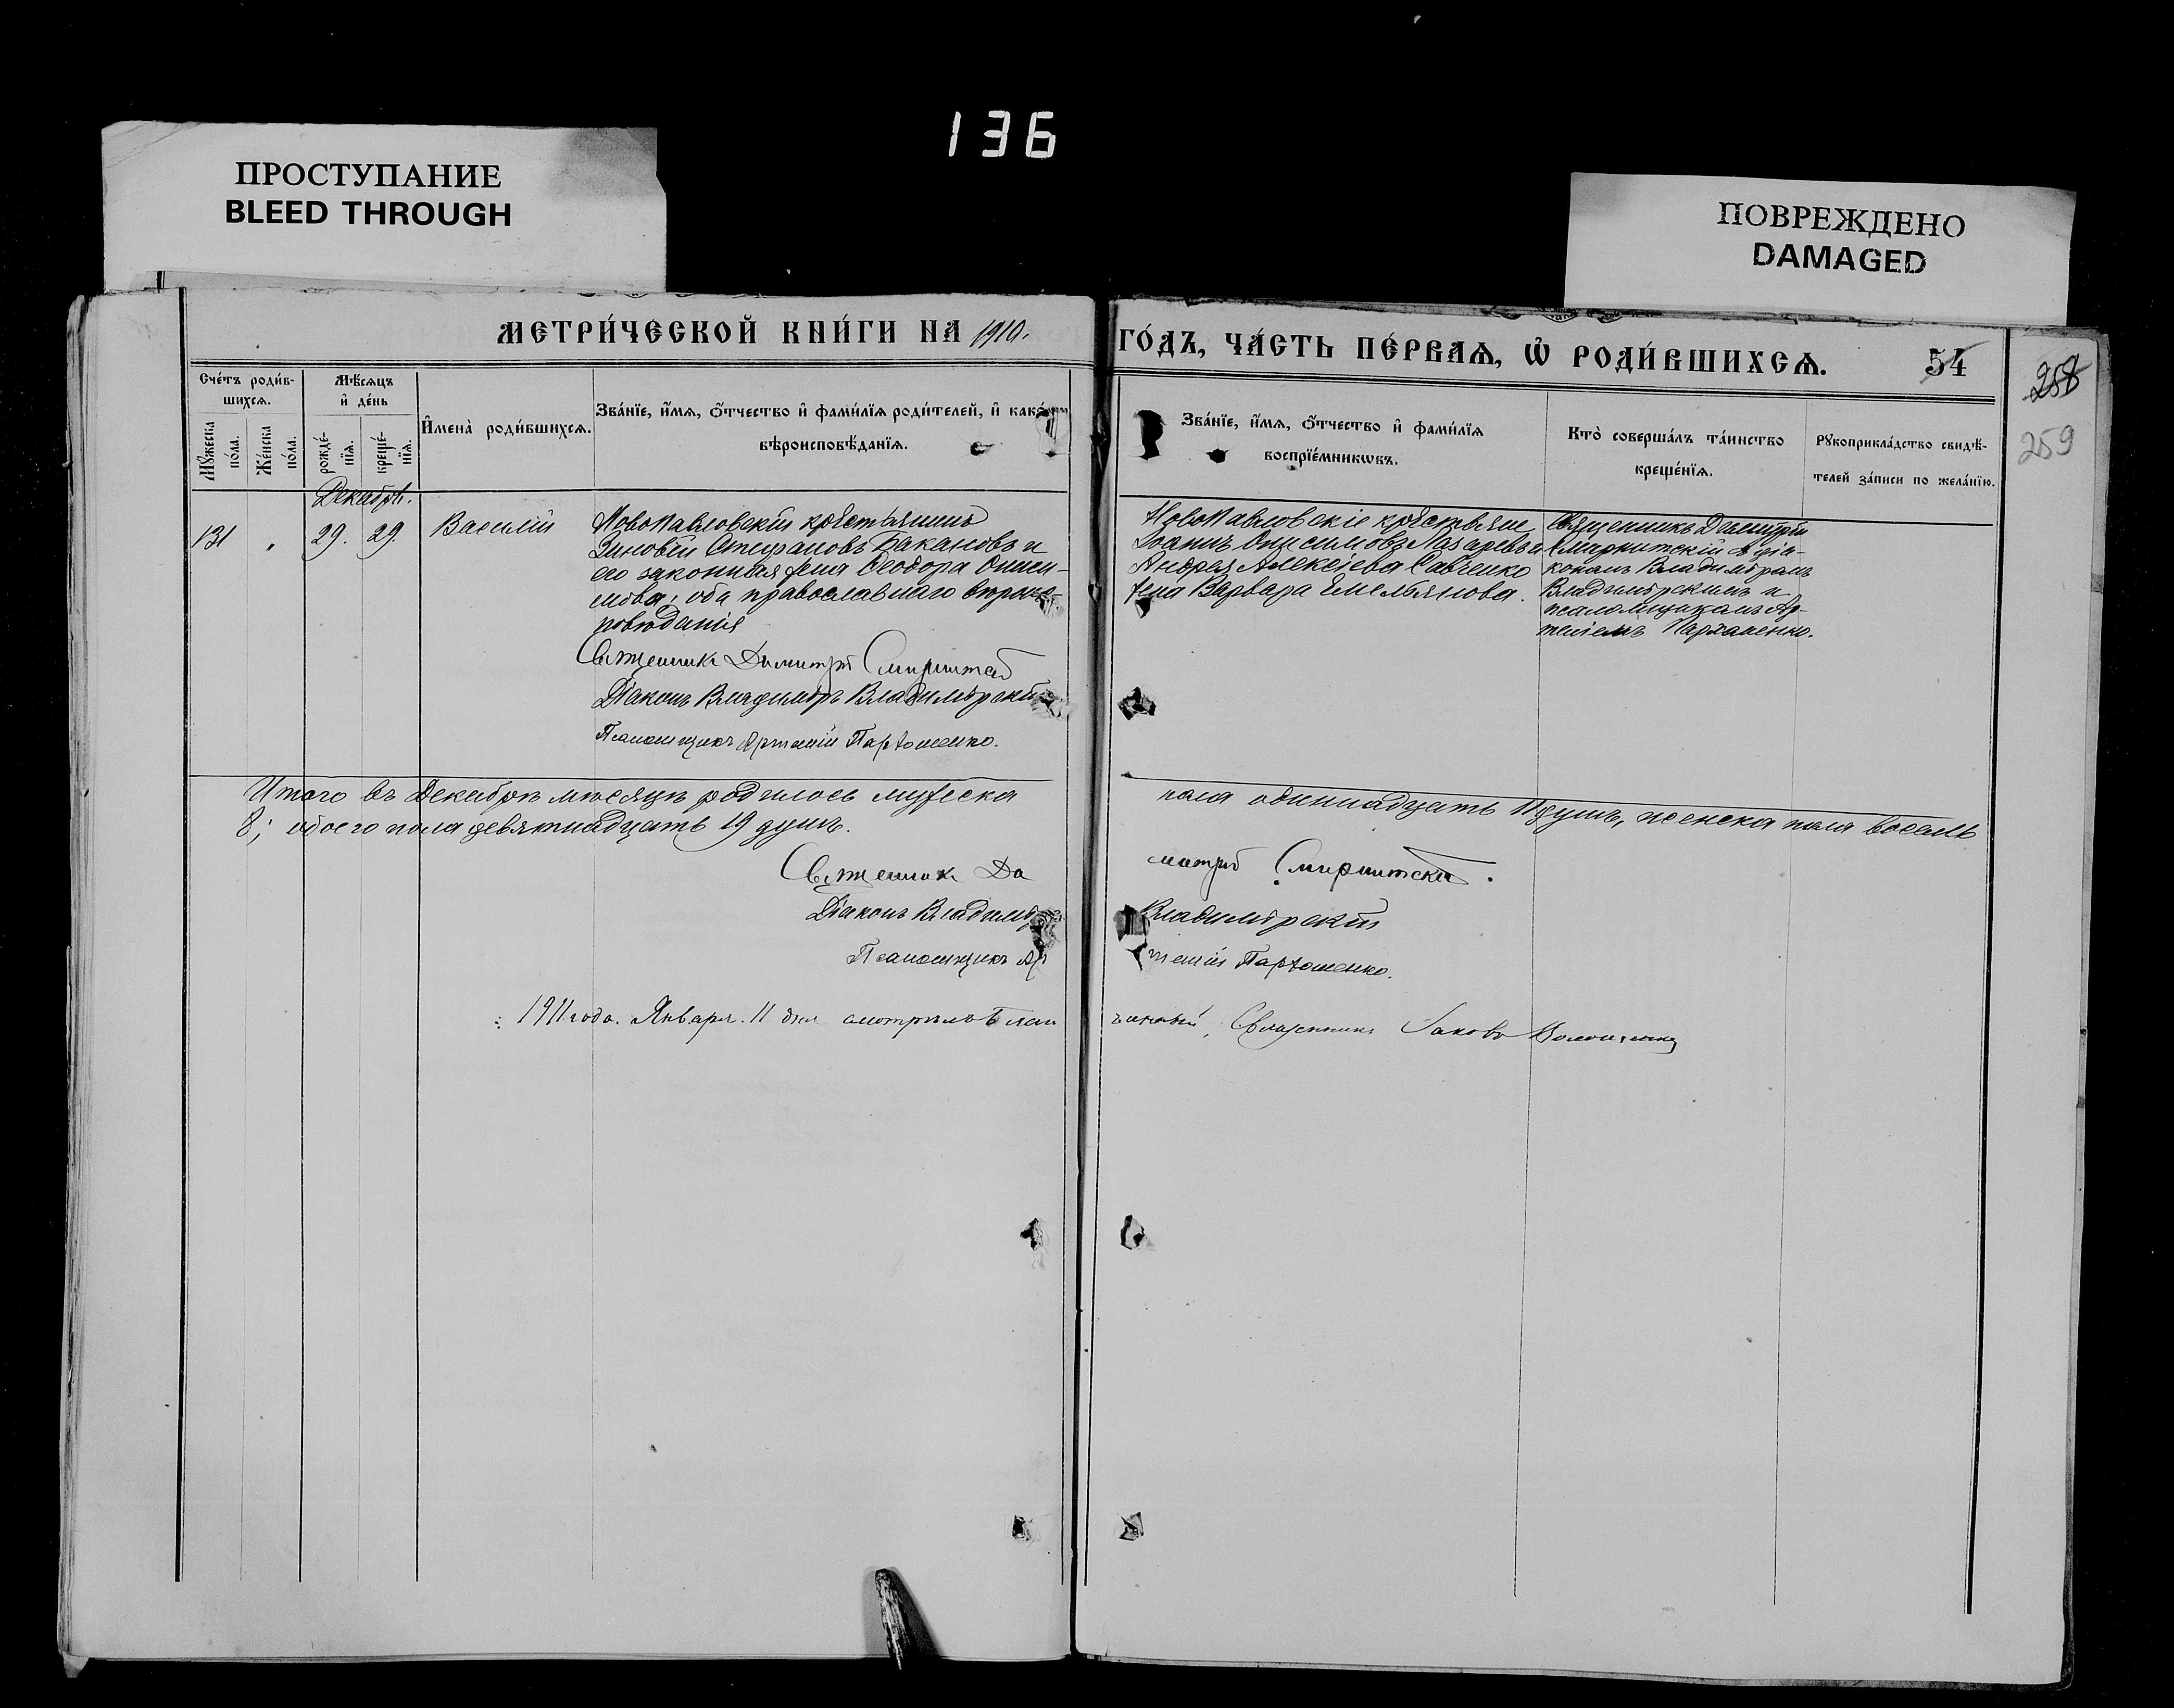 136
ПРОСТУПАНИЕ
BLEED THROUGH
ПОВРЕЖДЕНО
DAMAGED
МЕТРИ́ЧЕСКОЙ КНИ́ГИ НА 1910.
ГО́ДЪ, ЧА́СТЬ ПЕ́РВАѦ, Ѡ҆ РОДИ́ВШИХСѦ.
54
258
259
Сче́тъ роди́в-
шихсѧ.
Мѣ́сѧцъ
и҆ де́нь
Мꙋ́жеска
по́ла.
Же́нска
по́ла.
рожде́-
нїѧ.
креще́-
нїѧ.
И҆мена̀ роди́вшихсѧ.
Зва́нїе, и҆́мѧ, ѻ҆́тчество и҆ фами́лїѧ роди́телей, и҆ како́
вѣроисповѣ́данїѧ.
Зва́нїе, и҆́мѧ, ѻ҆́тчество и҆ фами́лїѧ
воспрїе́мникѡвъ.
Кто̀ соверша́лъ та́инство
креще́нїѧ.
Рꙋкоприкла́дство свидѣ́-
телей за́писи по жела́нїю.
Декабрь.
131
29.
29.
Василій
НовоПавловскій крестьянинъ
Зиновій Стефановъ Бакановъ и
его законная жена Ѳеодора Онисі-
мова, оба православнаго вѣроис-
повѣданія
Священникъ Димитрій Смирнитскій
Діаконъ Владиміръ Владимірскій
Псаломщикъ Артемій Пархоменко.
НовоПавловскіе крестьяне
Іоаннъ Онисимовъ Лазаревъ и
Андрея Алексіева Савченко
жена Варвара Емельянова.
Священникъ Димитрій
Смирнитскій съ діа-
кономъ Владиміромъ
Владимірскимъ и
псаломщикомъ Ар-
теміемъ Пархоменко.
Итого въ Декабрѣ мѣсяцѣ родилось мужеска
пола одиннадцать 11 душъ, женска пола восемь
8; обоего пола девятнадцать 19 душъ.
Священникъ Ди
митрій Смирнитскій.
Діаконъ Владиміръ
Владимірскій
Псаломщикъ Ар
темій Пархоменко.
1911 года. Января. 11 дня смотрѣлъ Благо
чинный, Священникъ Іаковъ